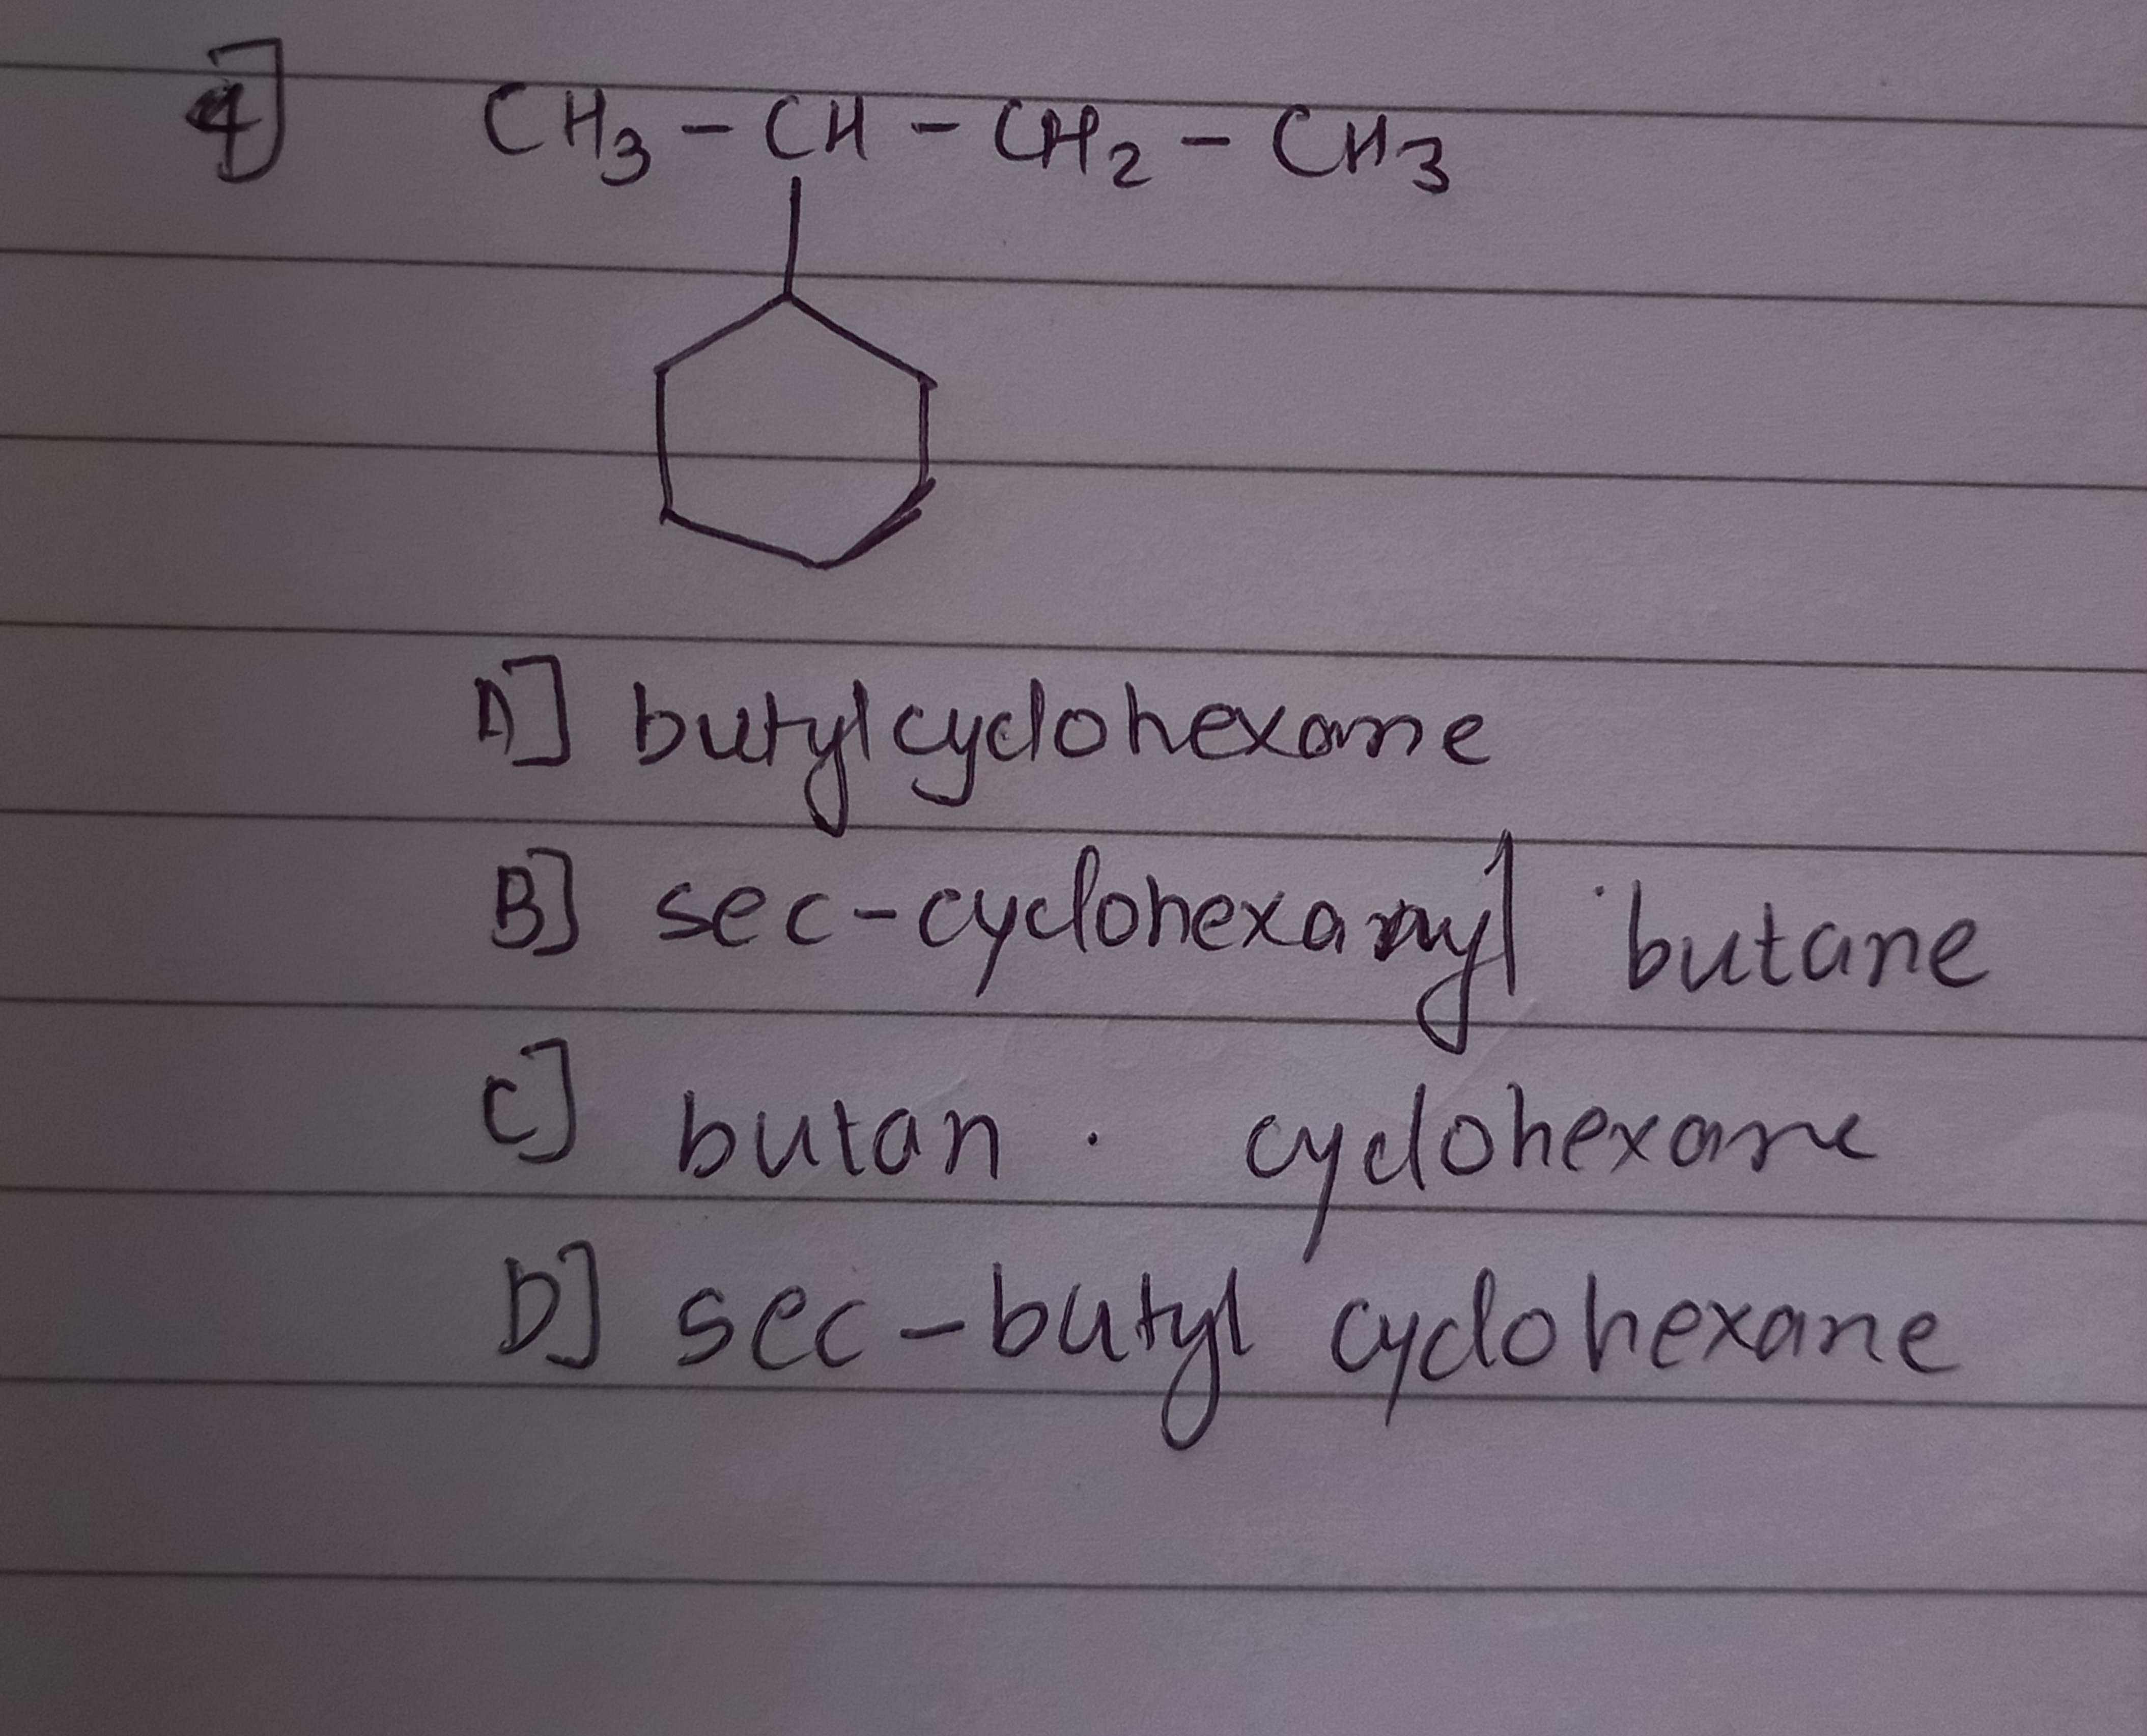 4] CH₃ - CH - CH₂ - CH₃
A] butylcyclohexane
B] sec-cyclohexanyl butane
C] butan cyclohexane
D] sec-butyl cyclohexane